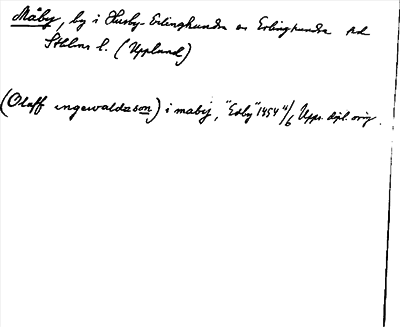 Måby, by i Husby-Erlinghundra sn Erlinghundra hd
Sthlms l. (Uppland)
(Oleff ingewaldason) i maby, "Edby" 1454 4/6 Upps. dpl. orig.